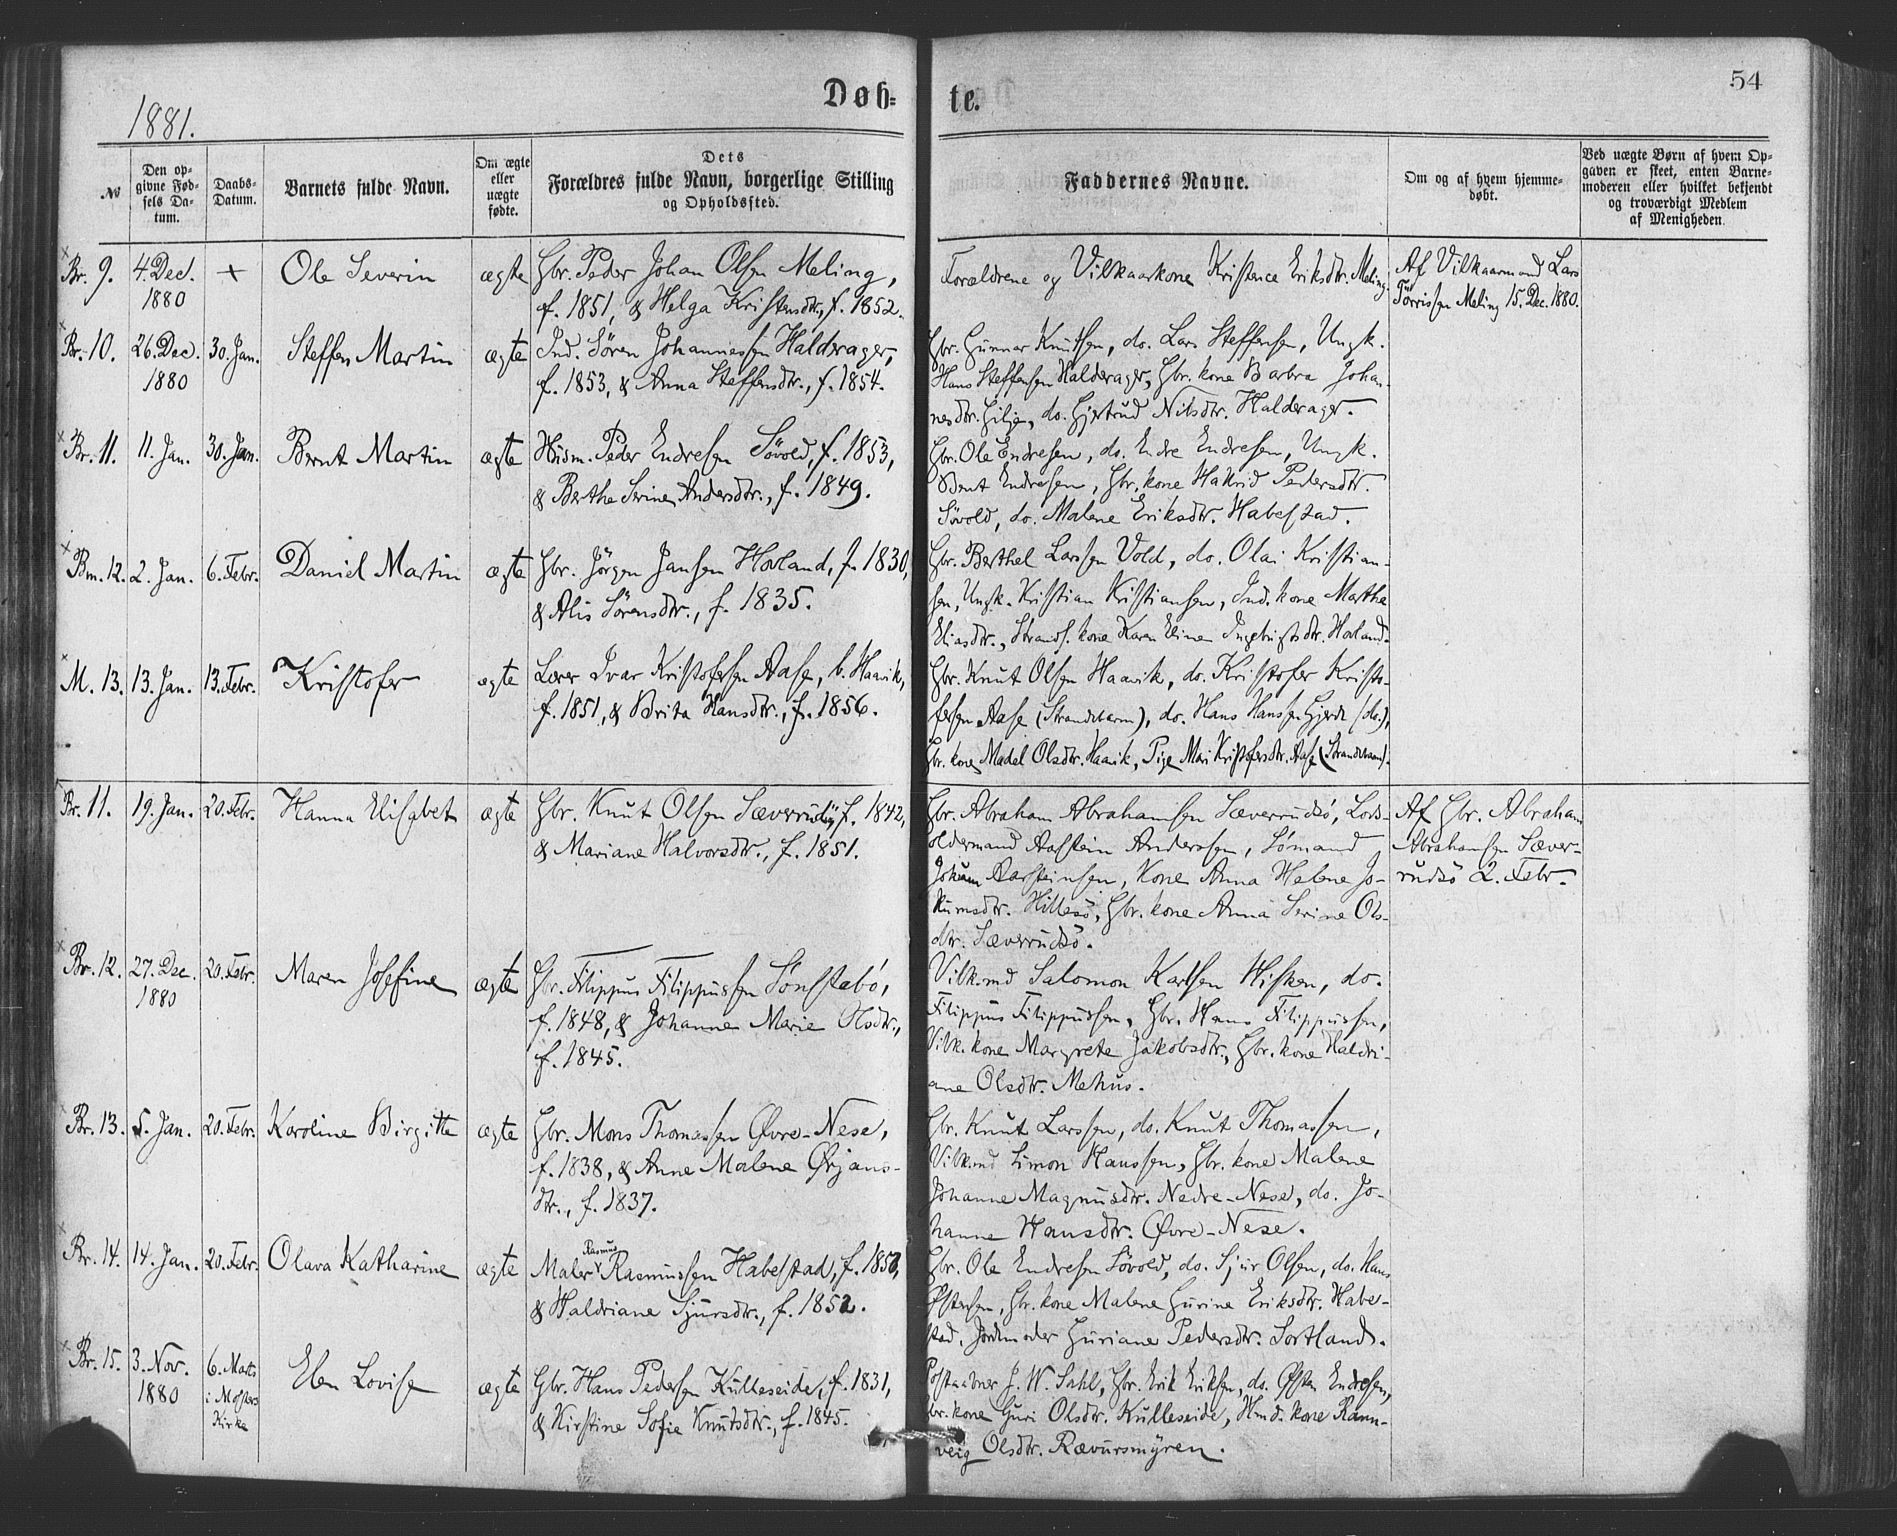 1881.
Døb=
te.
54
№
Den op-
givne Fød-
sels Da-
tum.
Daabs-
Datum.
Barnets fulde Navn.
Om ægte
eller
uægte
fødte.
Dets
Forældres fulde Navn, borgerlige Stilling
og Opholdssted.
Faddernes Navne.
Om og af hvem hjemme-
døbt.
Ved uægte Børn af hvem Op-
gaven er skeet, enten Barne-
moderen eller hvilket bekjendt
og troværdigt Medlem
af Menigheden.
Br. 9.
4. Dec.
1880
+
Ole Severin
ægte
Gbr. Peder Johan Olsen Meling,
f. 1851, & Helga Kristensdtr., f. 1852.
Forældrene og Vilkaarkone Kristence Eriksdtr. Meling.
Af Vilkaarmand Lars
Torrissen Meling 15. Dec. 1880.
Br. 10.
26. Dec.
1880
30. Jan.
Steffen Martin
ægte
Ind. Sören Johannessen Halderager,
f. 1853, & Anna Steffensdtr., f. 1854.
Gbr. Gunnar Knutsen, do. Lars Steffensen, Ungk.
Hans Steffensen Halderager, Gbr. kone Barbra Johan-
nesdtr. Gilje, do. Gjertrud Nilsdtr. Halderager.
Br. 11.
11. Jan.
30. Jan.
Bernt Martin
ægte
Husm. Peder Endresen Sövold, f. 1853,
& Berthe Serine Andersdtr., f. 1849.
Gbr. Ole Endresen, do. Endre Endresen, Ungk.
Bernt Endresen, Gbr. kone Hakrid Pedersdtr.
Sövold, do. Malene Eriksdtr. Habestad.
Bm. 12.
2. Jan.
6. Febr.
Daniel Martin
ægte
Gbr. Jörgen Jansen Hovland, f. 1830,
& Alis Sörensdtr., f. 1835.
Gbr. Berthel Larssen Vold, do. Olai Kristian-
sen, Ungk. Kristian Kristiansen, Ind. kone Marthe
Eliasdtr., Strands. kone Karen Eline Ingebrigtsdtr. Hovland.
M. 13.
13. Jan.
13. Febr.
Kristofer
ægte
Lærer Ivar Kristofersen Aase, b. Haavik,
f. 1851, & Brita Hansdtr., f. 1856.
Gbr. Knut Olsen Haavik, do. Kristofer Kristo-
fersen Aase (Strandebarm), do. Hans Hanssen Gjerde (do.),
Gbr. kone Madel Olsdtr. Haavik, Pige Mari Kristofersdtr. Aase (Strandebarm).
Br. 11.
19. Jan.
20. Febr.
Hanna Elisabet
ægte
Gbr. Knut Olsen Sæverudöy, f. 1842,
& Mariane Halvorsdtr., f. 1851.
Gbr. Abraham Abrahamsen Sæverudsö, Lods-
oldermand Aasstein Anderssen, Sømand
Jokum Aarsteinsen, Kone Anna Helene Jo-
kumsdtr. Hillesö, Gbr. kone Anna Serine Ols-
dtr. Sæverudsö.
Af Gbr. Abraham
Abrahamsen Sæver-
rudsö 2. Febr.
Br. 12.
27. Dec.
1880
20. Febr.
Maren Josefine
ægte
Gbr. Filippus Filippussen Sönstabö,
f. 1848, & Johanne Marie Olsdtr.,
f. 1845.
Vilk.md Salomon Karlsen Hisken, do.
Filippus Filippussen, Gbr. Hans Filippussen,
Vilk. kone Margrete Jakobsdtr., Gbr. kone Haldri-
ane Olsdtr. Mehus.
Br. 13.
5. Jan.
20. Febr.
Karoline Birgitte
ægte
Gbr. Mons Thomassen Øvre-Nese,
f. 1838, & Anne Malene Ørjans-
dtr., f. 1837.
Gbr. Knut Larssen, do. Knut Thomassen,
Vilk.md Simon Hanssen, Gbr. kone Malene
Johanne Magnusdtr. Nedre-Nese, do. Jo-
hanne Hansdtr. Øvre-Nese.
Br. 14.
14. Jan.
20. Febr.
Olava Katharine
ægte
Maler Rasmus Rasmussen Habestad, f. 1850,
& Haldriane Sjursdtr., f. 1852.
Gbr. Ole Endresen Sövold, do. Sjur Olsen, do. Hans
Østensen, Gbr. kone Malene Gurine Eriksdtr. Habe-
stad, Jordmoder Guriane Pedersdtr. Sortland.
Br. 15.
3. Nov.
1880
6. Marts
i Mosters
Kirke
Elen Lovise
ægte
Gbr. Hans Pedersen Kulleseide, f. 1831,
& Kirstine Sofie Knutsdtr., f. 1845.
Postaabner J. W. Sahl, Gbr. Erik Eriksen, do. Østen Endresen,
Gbr. kone Guri Olsdtr. Kulleseide, Hmd. kone Rann-
veig Olsdtr. Rævursmýren.